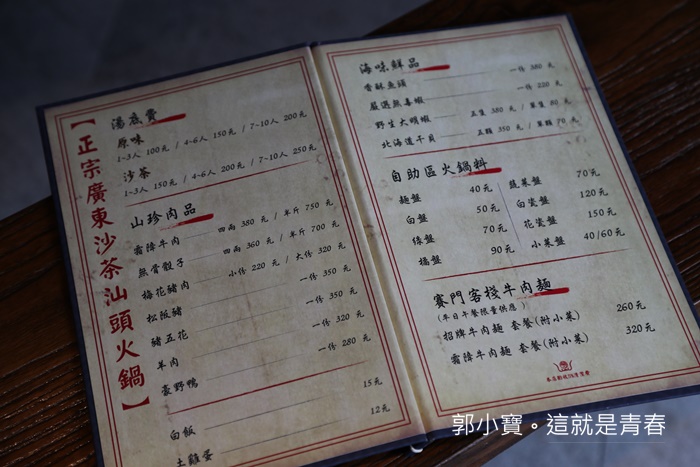 【正宗廣東沙茶汕頭火鍋】
湯底費
原味
1~3人 100元 / 4~6人 150元 / 7~10人 200元
沙茶
1~3人 150元 / 4~6人 200元 / 7~10人 250元
山珍肉品
霜降牛肉 四兩 380元 / 半斤 750元
無骨骰子 四兩 360元 / 半斤 700元
梅花豬肉 小份 220元 / 大份 320元
松阪豬 一份 350元
豬五花 一份 350元
羊肉 一份 320元
豪野鴨 一份 280元
白飯 15元
土雞蛋 12元
海味鮮品
香酥魚頭 一份 380元
嚴選無毒蝦 一份 220元
野生大明蝦 五隻 380元 / 單隻 80元
北海道干貝 五顆 350元 / 單顆 70元
自助區火鍋料
麵盤 40元
白盤 50元
綠盤 70元
橘盤 90元
蔬菜盤 70元
白瓷盤 120元
花瓷盤 150元
小菜盤 40/60元
賽門客棧牛肉麵
(平日午餐限量供應)
招牌牛肉麵 套餐(附小菜) 260元
霜降牛肉麵 套餐(附小菜) 320元
郭小寶。這就是青春